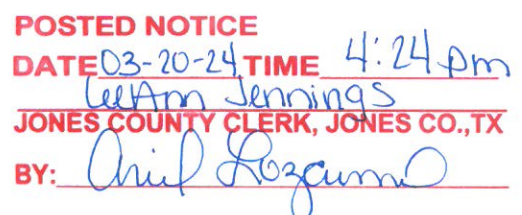 POSTED NOTICE
DATE 03-20-24 TIME 4:24 pm
LeeAnn Jennings
JONES COUNTY CLERK, JONES CO., TX
BY: